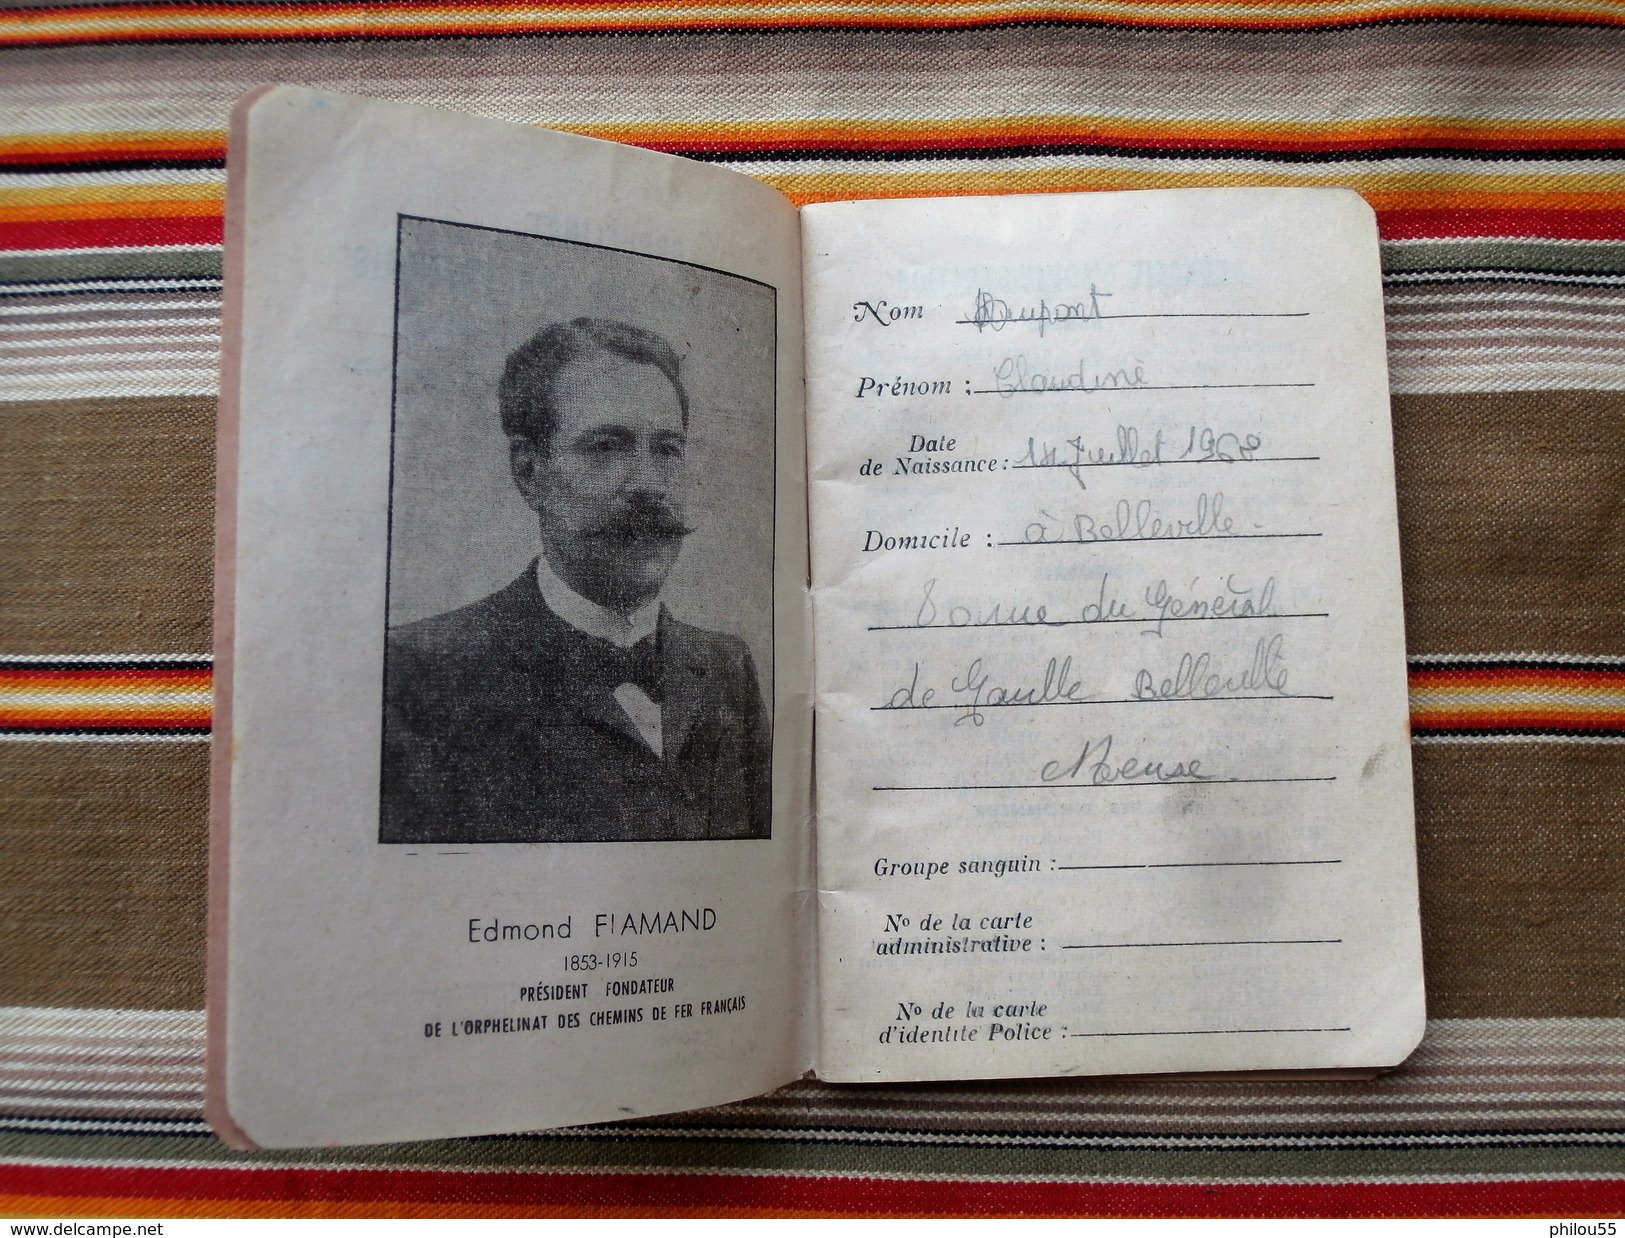 Edmond FLAMAND
1853-1915
PRÉSIDENT FONDATEUR
DE L'ORPHELINAT DES CHEMINS DE FER FRANÇAIS
Nom Dupont
Prénom : Claudine
Date
de Naissance : 14 Juillet 1968
Domicile : à Belleville.
rue du Général
de Gaulle Belleville
Meuse.
Groupe sanguin :
No de la carte
administrative :
No de la carte
d'identité Police :
www.delcampe.net
philou55